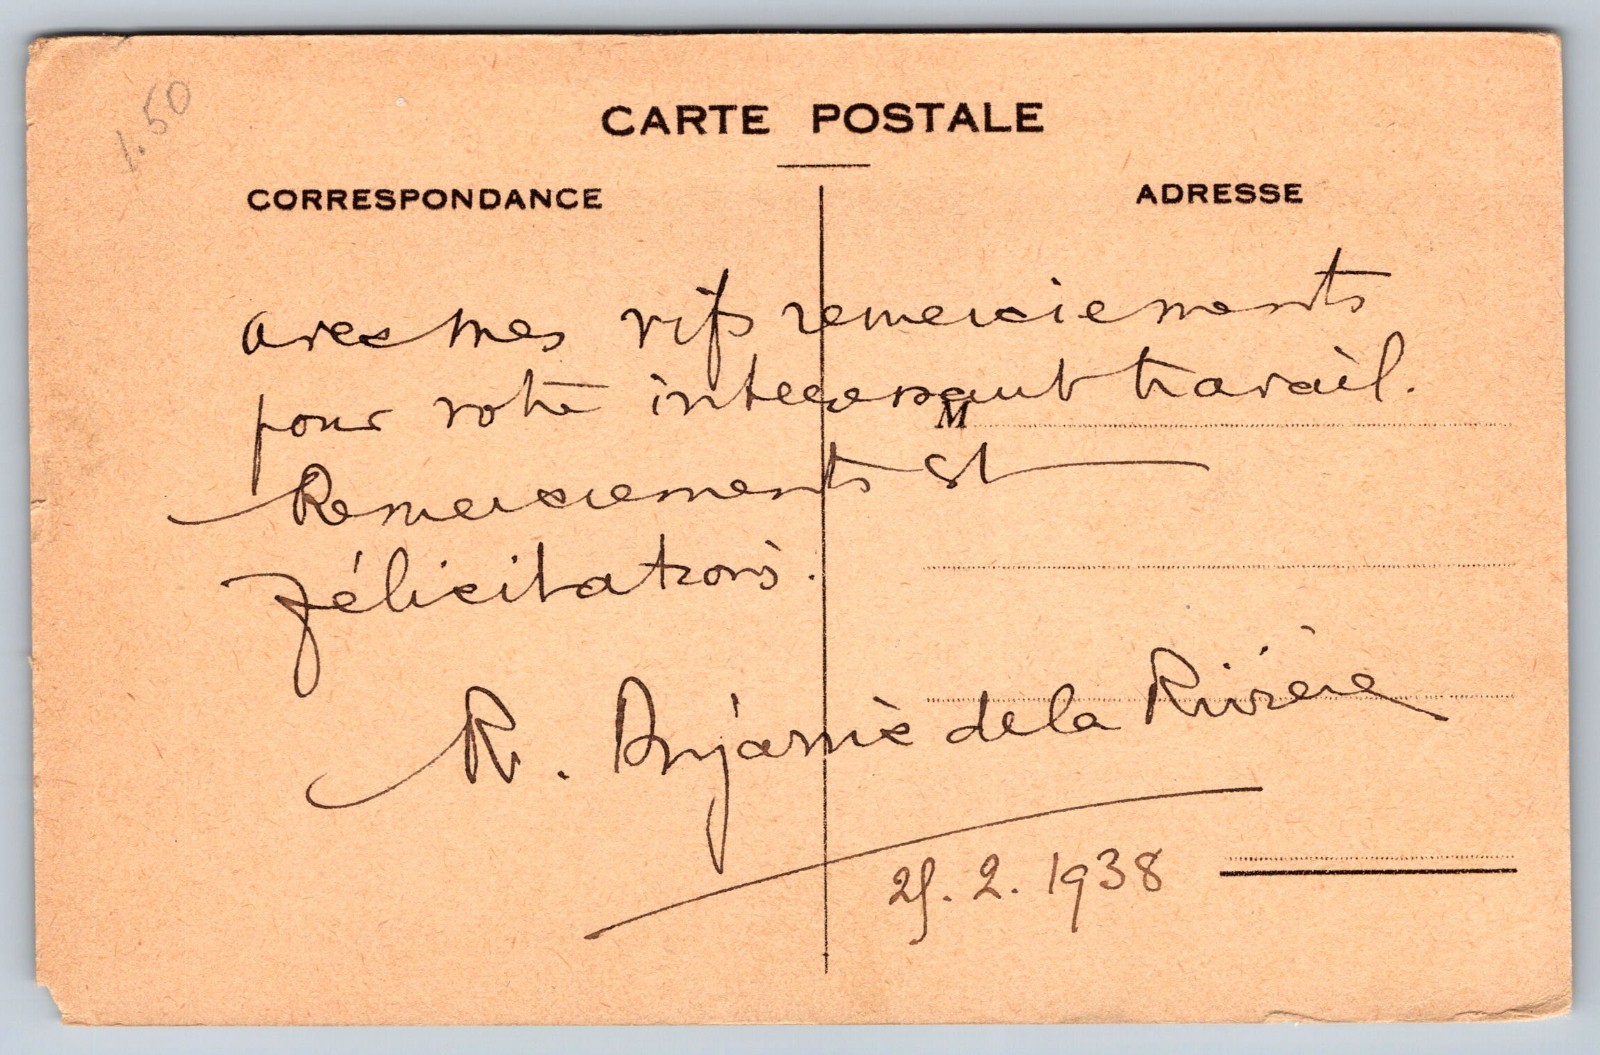 1.50
CARTE POSTALE
CORRESPONDANCE
ADRESSE
avec mes vifs remerciements
pour votre intéressant travail.
M
Remerciements et
félicitations.
R. Benjamin de la Rivière
25. 2. 1938